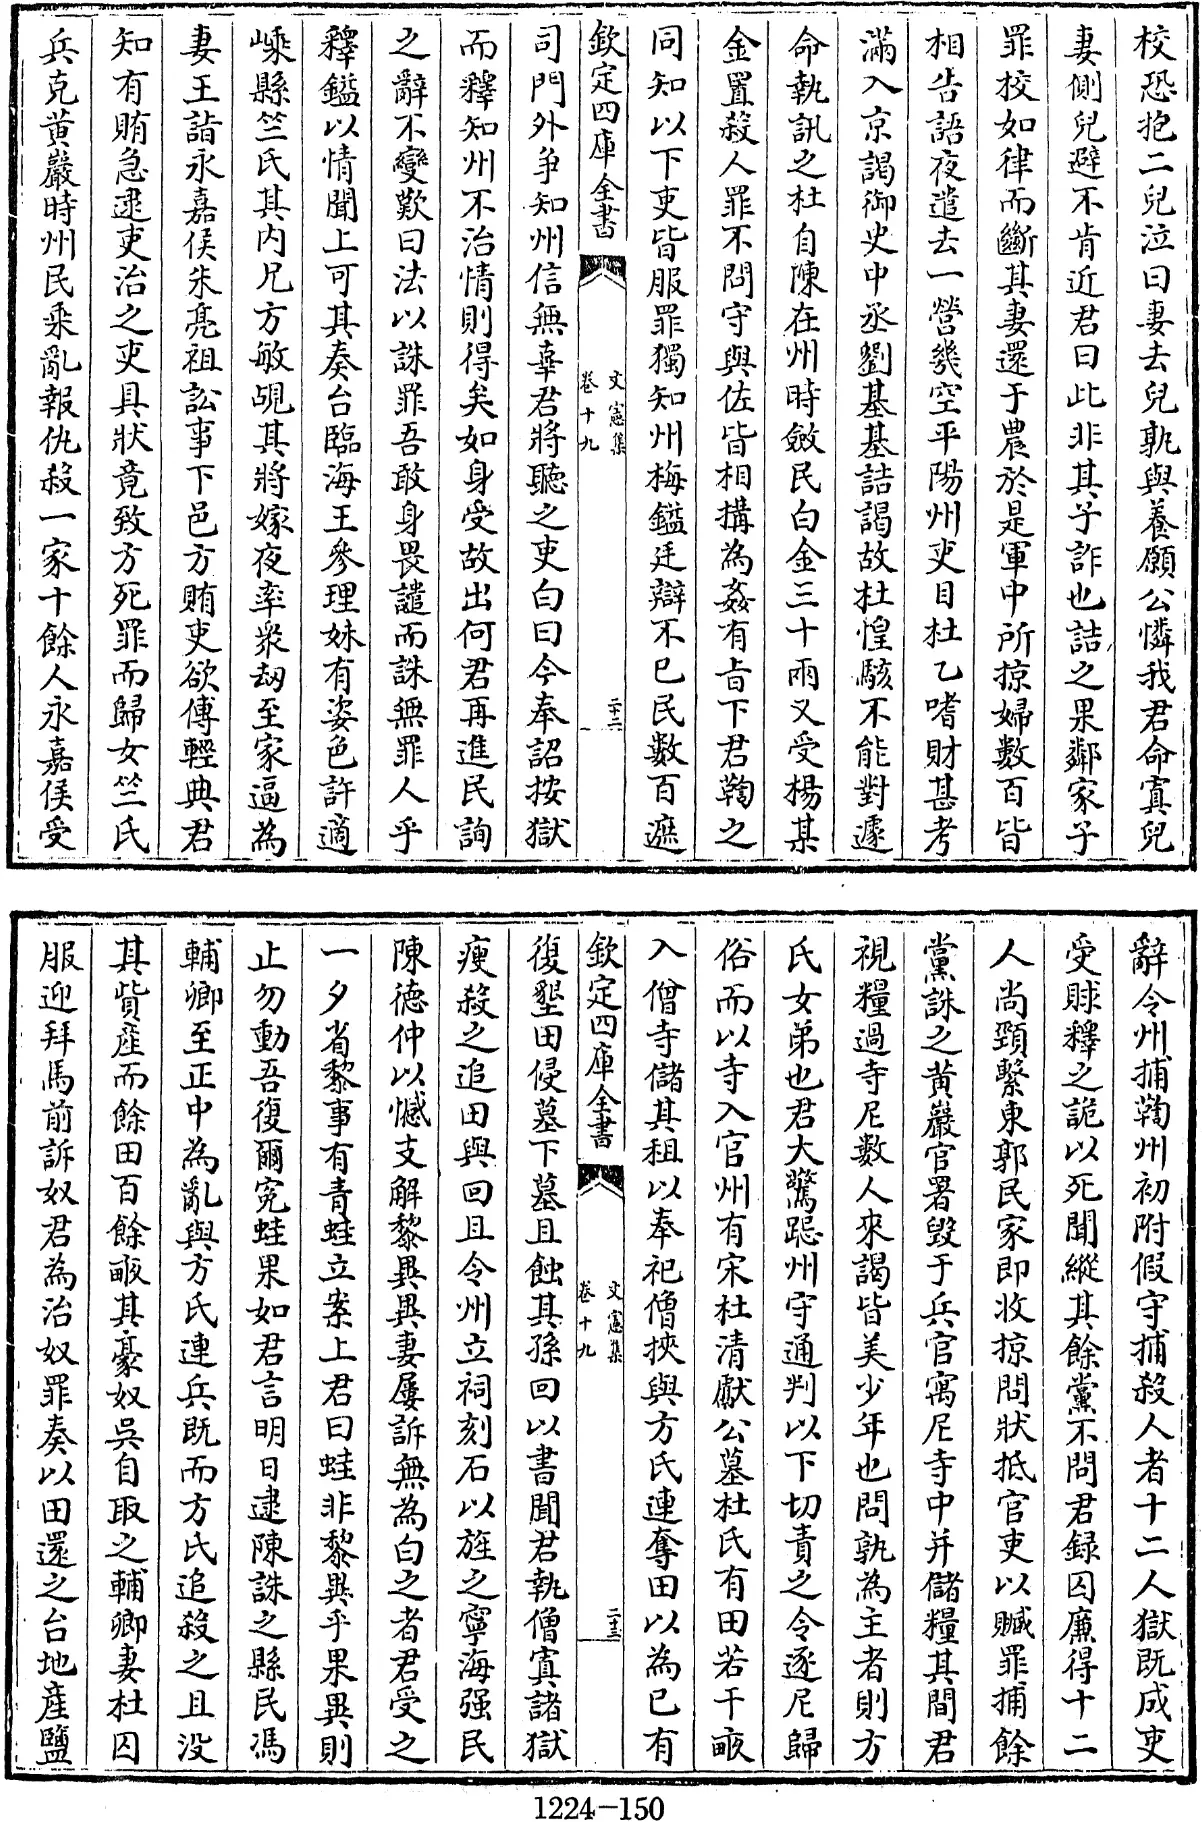 校恐抱二兒泣曰妻去兒孰與養願公憐我君命寘兒
妻側兒避不肯近君曰此非其子詐也詰之果鄰家子
罪校如律而斷其妻還于農於是軍中所掠婦數百皆
相告語夜遣去一營幾空平陽州吏目杜乙嗜財甚考
滿入京謁御史中丞劉基基詰謁故杜惶駭不能對遽
命執訊之杜自陳在州時斂民白金三十兩又受楊某
金置殺人罪不問守與佐皆相搆為姦有㫖下君鞫之
同知以下吏皆服罪獨知州梅鎰廷辯不已民數百遮
欽定四庫全書
文憲集
卷十九
二十二
司門外爭知州信無辜君將聽之吏白曰今奉詔按獄
而釋知州不治情則得矣如身受故出何君再進民詢
之辭不變歎曰法以誅罪吾敢身畏譴而誅無罪人乎
釋鎰以情聞上可其奏台臨海王參理妹有姿色許適
嵊縣竺氏其内兄方敏覘其將嫁夜率衆刼至家逼為
妻王詣永嘉侯朱亮祖訟事下邑方賄吏欲傅輕典君
知有賄急逮吏治之吏具狀竟致方死罪而歸女竺氏
兵克黄巖時州民乘亂報仇殺一家十餘人永嘉侯受
辭令州捕鞫州初附假守捕殺人者十二人獄既成吏
受賕釋之詭以死聞縱其餘黨不問君録囚廉得十二
人尚頸繫東郭民家即收掠問狀抵官吏以贓罪捕餘
黨誅之黄巖官署毀于兵官寓尼寺中并儲糧其間君
視糧過寺尼數人來謁皆美少年也問孰為主者則方
氏女弟也君大驚跽州守通判以下切責之令逐尼歸
俗而以寺入官州有宋杜清獻公墓杜氏有田若干畝
入僧寺儲其租以奉祀僧挾與方氏連奪田以為已有
欽定四庫全書
文憲集
卷十九
二十三
復墾田侵墓下墓且蝕其孫回以書聞君執僧寘諸獄
瘦殺之追田與回且令州立祠刻石以旌之寧海强民
陳德仲以憾支解黎異異妻屢訴無為白之者君受之
一夕省黎事有青蛙立案上君曰蛙非黎異乎果異則
止勿動吾復爾寃蛙果如君言明日逮陳誅之縣民馮
輔卿至正中為亂與方氏連兵既而方氏追殺之且没
其貲產而餘田百餘畝其豪奴吳自取之輔卿妻杜囚
服迎拜馬前訴奴君為治奴罪奏以田還之台地產鹽
1224-150